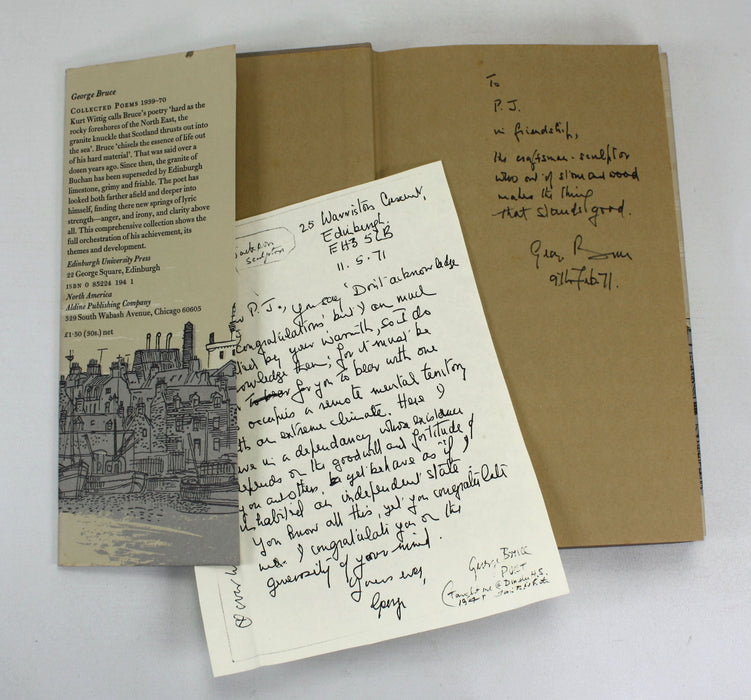 George Bruce
COLLECTED POEMS 1939-70
Kurt Wittig calls Bruce's poetry 'hard as the
rocky foreshores of the North East, the
granite knuckle that Scotland thrusts out into
the sea'. Bruce 'chisels the essence of life out
of his hard material'. That was said over a
dozen years ago. Since then, the granite of
Buchan has been superseded by Edinburgh
limestone, grimy and friable. The poet has
looked both farther afield and deeper into
himself, finding there new springs of lyric
strength—anger, and irony, and clarity above
all. This comprehensive collection shows the
full orchestration of his achievement, its
themes and development.
Edinburgh University Press
22 George Square, Edinburgh
ISBN 0 85224 194 1
North America
Aldine Publishing Company
529 South Wabash Avenue, Chicago 60605
£1·50 (30s.) net
To
P. J.
in friendship,
the craftsman-sculptor
who out of stone and wood
makes the thing
that stands good.
George Bruce
9th Feb 71.
25 Warriston Crescent,
Edinburgh.
EH3 5LB
11. 5. 71
sculptor
P. J., you say 'Don't acknowledge
congratulations' but I am much
by your warmth, so I do
them; for it must be
for you to bear with one
occupies a remote mental territory
an extreme climate. Here I
in a dependancy whose existence
on the goodwill and fortitude of
you and others, & yet behave as if I
inhabited an independent state.
You know all this, yet you congratulate
me. I congratulate you on the
generosity of your mind.
Yours ever,
George
George Bruce
POET
(Taught me @ Dundee H.S.